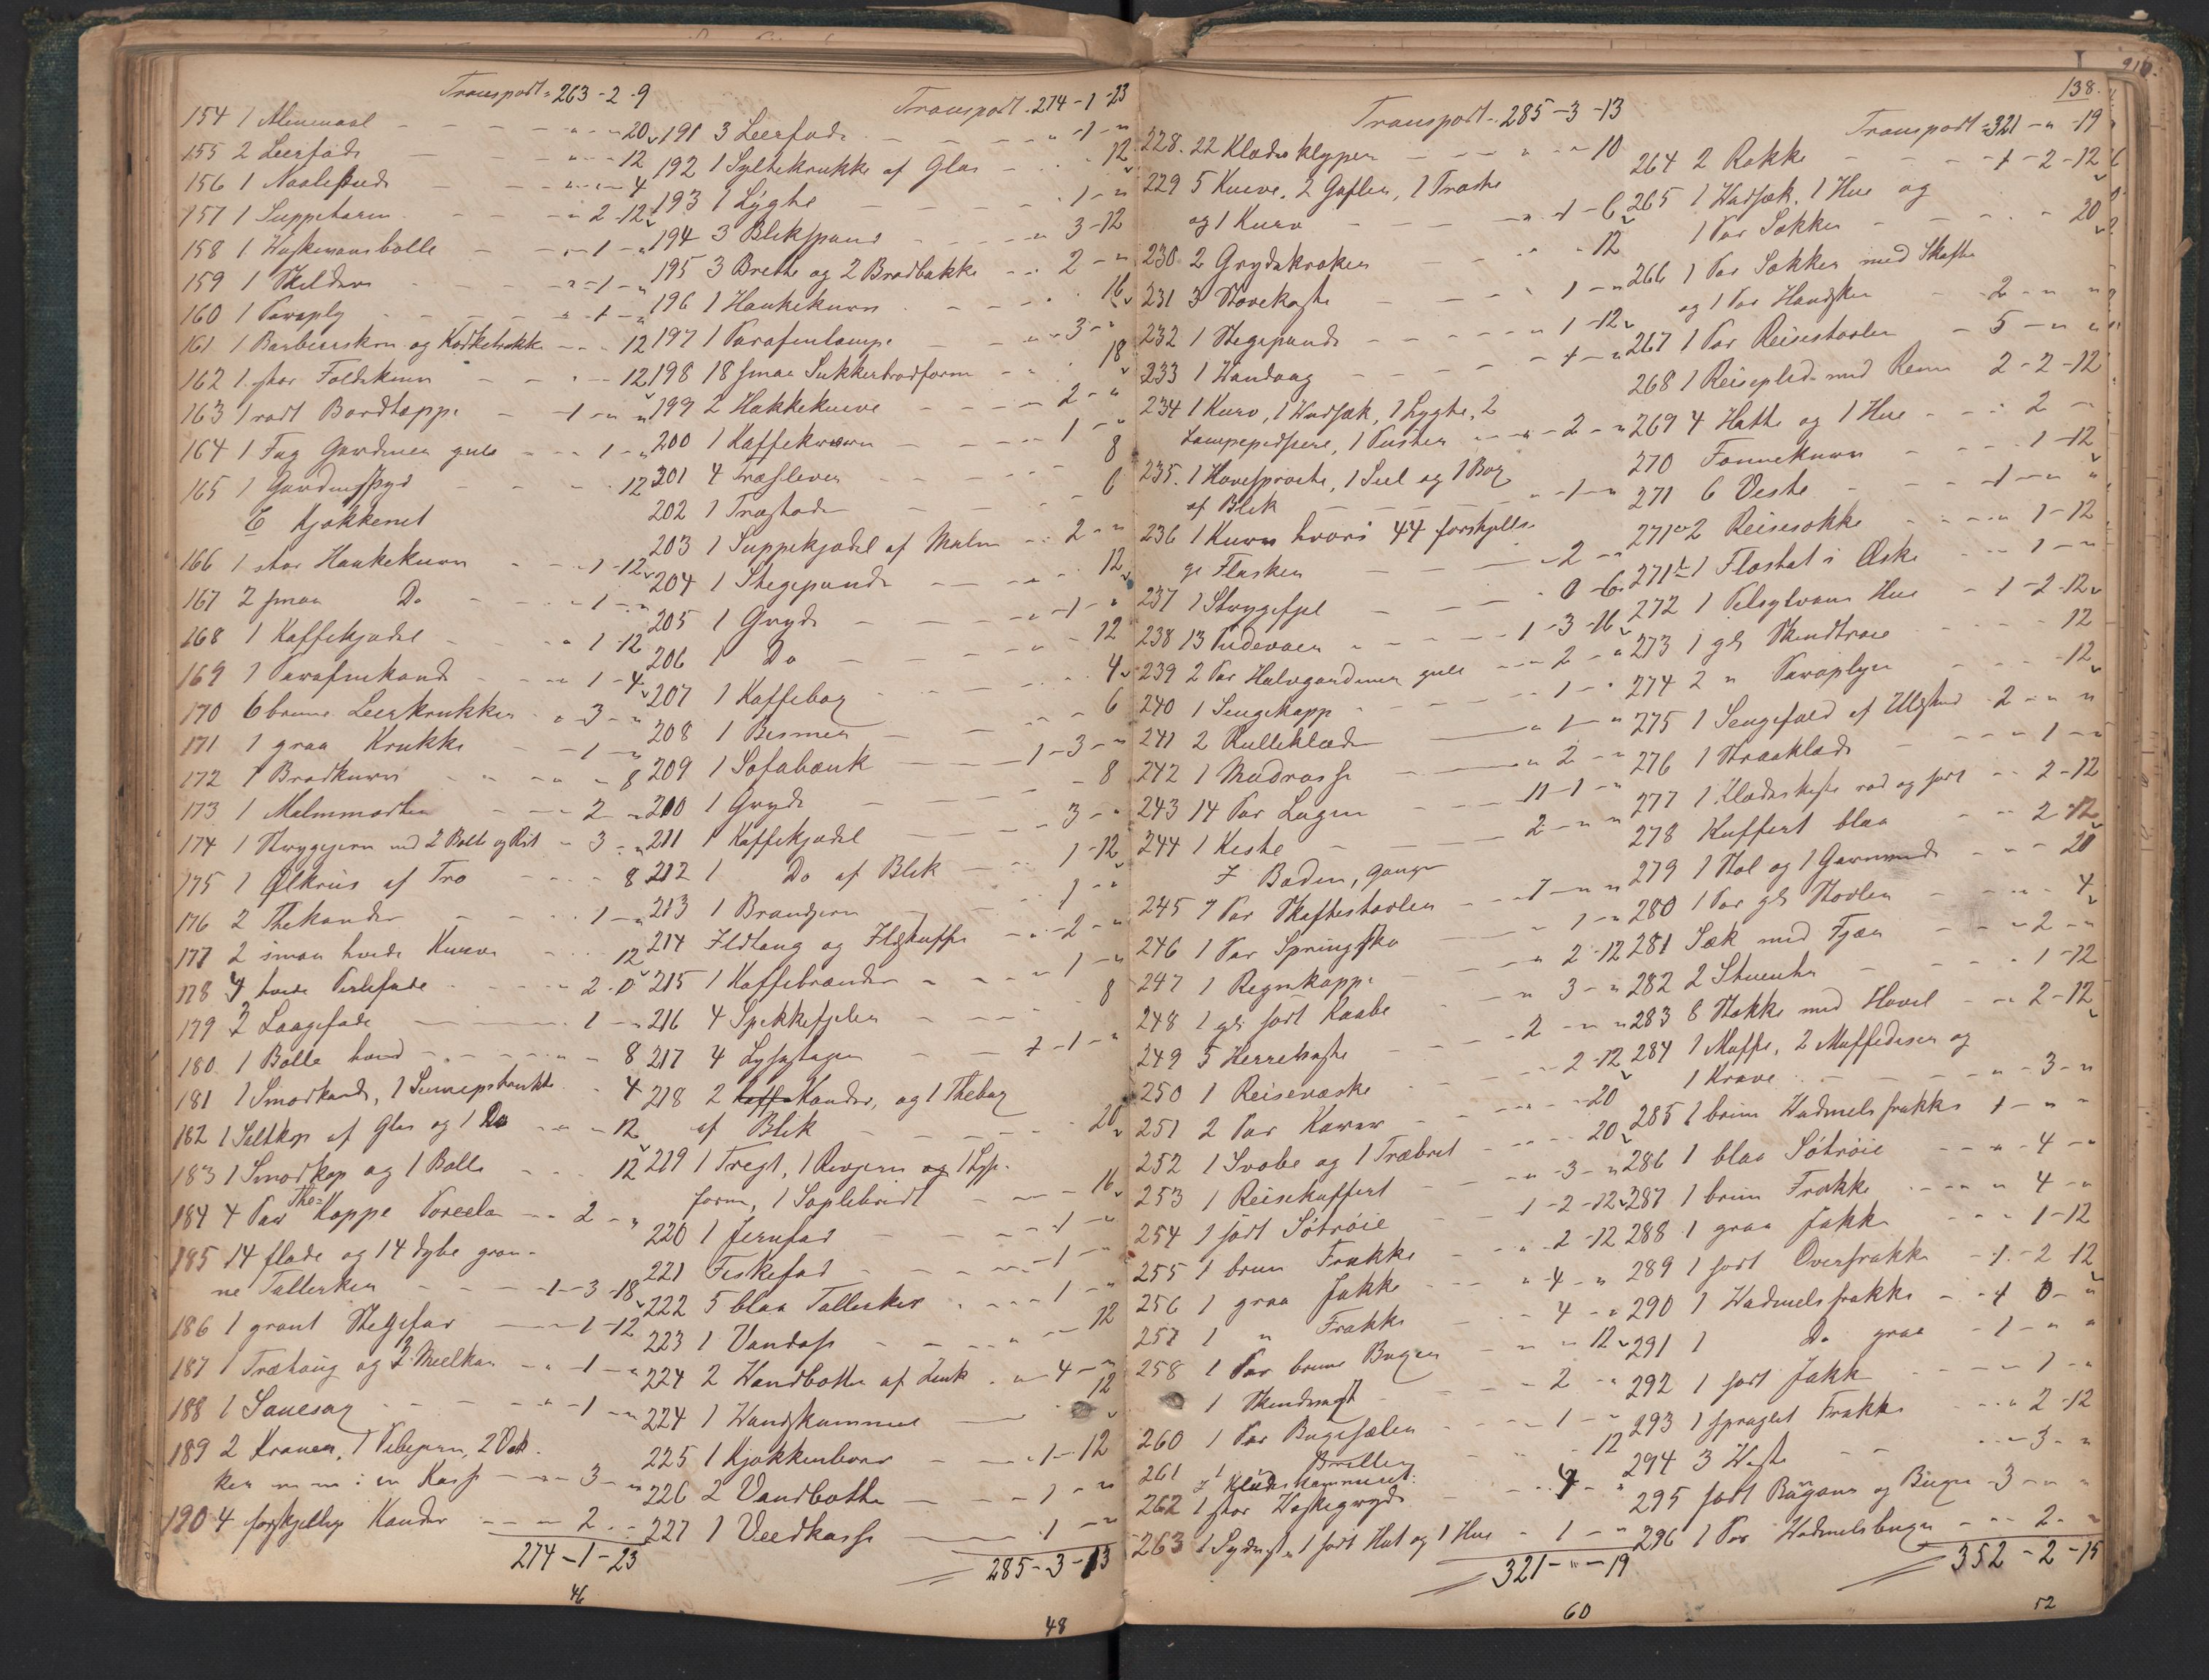 Transport - 263 - 2 - 9
154 1 Alenmaal - - - " - " - 20
155 2 Leerfade - " - " - 12
156 1 Naalepude - " - " - 4
157 1 Suppeterin - - " 2 - 12
158 1 Vaskevandsbolle - " - 1 - "
159 1 Skilderi - " - 1 - "
160 1 Paraply - " - 1 - "
161 1 Barbeerskrin og - - 12
162 1 stor Foldekniv - " - 12
163 1 rødt Bordtæppe - 1 - " "
164 1 Fag Gardiner gule - - 1 - "
165 1 - - 12
E Kjøkkenet
166 1 stor Hankekurv - - 1 - 12
167 2 smaa Do - - 1 - "
168 1 Kaffekjedel - " 1 - 12
169 1 Parafinkande - - " 1 - 4
170 6 brune Leerkrukker - " 3 - "
171 1 graa Krukke - - 1 - "
172 1 Brødkurv - " - " 8
173 1 Malmmorter - - 2 - "
174 1 Strygejern med 2 Bolte og Rist " 3 - "
175 1 Ølkrus af Træ - - - 8
176 2 Thekander - - 1 - "
177 2 smaa hvide Kurve - - 12
178 4 hvide - - 2 - 0
179 2 Laagefade - 1 - "
180 1 Bolle hvid - - " - 8
181 1 Smørkande, 1 Senepskrukke - 4
182 1 Saltkop af Glas og 1 Do - " - 12
183 1 Smørkop og 1 Bolle - - 12
184 4 Par The= Koppe Porcelæn - - 2 - "
185 14 flade og 14 dybe grøn-
ne Tallerken - - 1 - 3 - 18
186 1 grønt Stegefad - - 1 - 12
187 1 og 2 - " - 1 - "
188 1 - " - 1 - "
189 2 Kraner, 1 2
ken m m i en Kasse - " - 3 - "
190 4 forskjellige Kander - - - 2 - -
274 - 1 - 23
46
Transport - 274 - 1 - 23
191 3 Leerfade - - " - 1 - "
192 1 Syltekrukke af Glas - - 12
193 1 Lygte - - 1 - "
194 3 Blikspand - - " 3 - 12
195 3 Brette og 2 Brødbakke - - 2 - "
196 1 Hankekurv - - 16
197 1 Parafinlampe - - 3 - "
198 18 smaa Sukkerbrødforme - - 18
199 2 Hakkeknive - - 2 - "
200 1 Kaffekværn - - 1 - "
201 4 Træslever - - 8
202 1 - - 6
203 1 Suppekjedel af Malm - - 2 - "
204 1 Stegepande - - 12
205 1 Gryde - - 1 - "
206 1 Do - - " 12
207 1 Kaffebog - - 4
208 1 Bismer - - 6
209 1 Sofabænk - 1 - 3 - "
210 1 Gryde - - 8
211 1 Kaffekjedel - - 3 - "
212 1 Do af Blik - - 1 - 12
213 1 Brandjern - - 1 - "
214 Ildtang og Ildskuffe - - 2 - "
215 1 Kaffebrænder - - 1 - "
216 4 Spekkefjeler - - 8
217 4 Lysestager - - 1 - 1 - "
218 2 Kander, og 1 Thebog
af Blik - - 20
219 1 Tregt, 1 Rivjern og 1 Lys-
form, 1 - - 16
220 1 Jernfad - - 1 - "
221 Fiskefad - - 1 - "
222 5 blaa Tallerker - - 1 - "
223 1 Vandøse - - 12
224 2 Vandbøtter af Zink - " 4 - "
224 1 Vandskammel - 12
225 1 Kjøkkenbord - - 1 - 12
226 2 Vandbøtte - - 1 - "
227 1 Veedkasse - 1 - "
285 - 3 - 13
48
138.
Transport - 285 - 3 - 13
228. 22 Klædesklyper - - " - 10
229 5 Knive, 2 Gafler, 1
og 1 Kurv - - " - 1 - 6
230 2 Grydekroker - - 12
231 3 - - 1 - "
232 1 Stegepande - - " 1 - 12
233 1 Vandaag - 1 - "
234 1 Kurv, 1 Vadsæk, 1 Lygte, 2
Lampepudsere, 1 Puster - " - 2 - "
235. 1 Havesprøite, 1 Seel og 1 Bog
af Blik - " - 1 - "
236 1 Kurv hvori 44 forskjelli-
ge Flasker - - 2 - "
237 1 Strygefjel - - 0 - 6
238 13 Pudevaer - 1 - 3 - 16
239 2 Par Halvgardiner gule - - 2 - "
240 1 Sengekappe - - 1 - "
241 2 Rulleklæder - " 1 - "
242 1 Madrasse - - " 2 - "
243 14 Par Lagen - 11 - 1 - "
244 1 Kiste - - 2 - " "
I Boden, gangen
245 7 Par Skaftestøvler - - 7 - " "
246 1 Par Springsko - 1 - "
247 1 Regnkappe - - " 2 - 12
248 1 gl. sort Kaabe - " 3 - "
249 5 - - 2 - " "
250 1 Reisevæske - - 2 - 12
251 2 Par Karder - - 20
252 1 Svøbe og 1 Træbret - - 20
253 1 Reisekuffert - - " 3 - "
254 1 sort Søtrøie - 1 - 2 - 12
255 1 brun Frakke - - " 2 - 12
256 1 graa Jakke - - " 4 - "
257 1 " Frakke - - 4 - "
258 1 Par brune Buxer - " - 12
1 Skindvest - - 2 - "
260 1 Par Buxeseler - - 1 - "
261 1 Briller - - 12
I Klædekammeret.
262 1 stor Vaskegryde - - 4 - "
263 1 Sydvest, 1 sort Hat og 1 Hue - 1 - "
321 - " - 19
60
Transport - 321 - " - 19
264 2 Rokke - - 1 - 2 - 12
265 1 Vadsæk, 1 Hue og
1 Par Sokker - - - 20
266 1 Par Sokker med Skafter
og 1 Par Handsker - 2 - " "
267 1 Par Reisestøvler - 5 - " "
268 1 Reisepled med Remme 2 - 2 - 12
269 4 Hatte og 1 Hue - - 2 -
270 Tønnekurv - - 1 - 12
271 6 Veste - - 1 - " "
271a 2 Reisesække - - " 1 - 12
271b 1 Floshat i Æske - - 1 - "
272 1 Hue - 1 - 2 - 12
273 1 gl. Skindtrøie - - 12
274 2 " Paraplyer - - 12
275 1 Sengefæld af 2 - " "
276 1 - - 1 - "
277 1 rød og sort - - 2 - 12
278 Kuffert blaa - - 2 - 12
279 1 Stol og 1 - - 20
280 1 Par gl. Støvler - - " - 4
281 Sæk med Fjær - - " 2 - "
282 2 - - 1 - 12
283 8 Stokke med Høvel - - " 2 - 12
284 1 Muffe, 2 og
1 Krave - - " - 3 - "
285 1 brun Vadmelsfrakke 1 - " "
286 1 blaa Søtrøie - - " - 4 - "
287 1 brun Frakke - - " 4 - "
288 1 graa Jakke - - " 1 - 12
289 1 sort Overfrakke - 1 - 2 - 12
290 1 Vadmelsfrakke - - 1 0 - "
291 1 Do graa - 1 - " "
292 1 sort Jakke - - 1 - "
293 1 spraglet Frakke - - " 2 - 12
294 3 Veste - - " - 3 - "
295 sort og Buxer - 3 - " "
296 1 Par Vadmelsbuxer - - " 2 - "
352 - 2 - 15
52